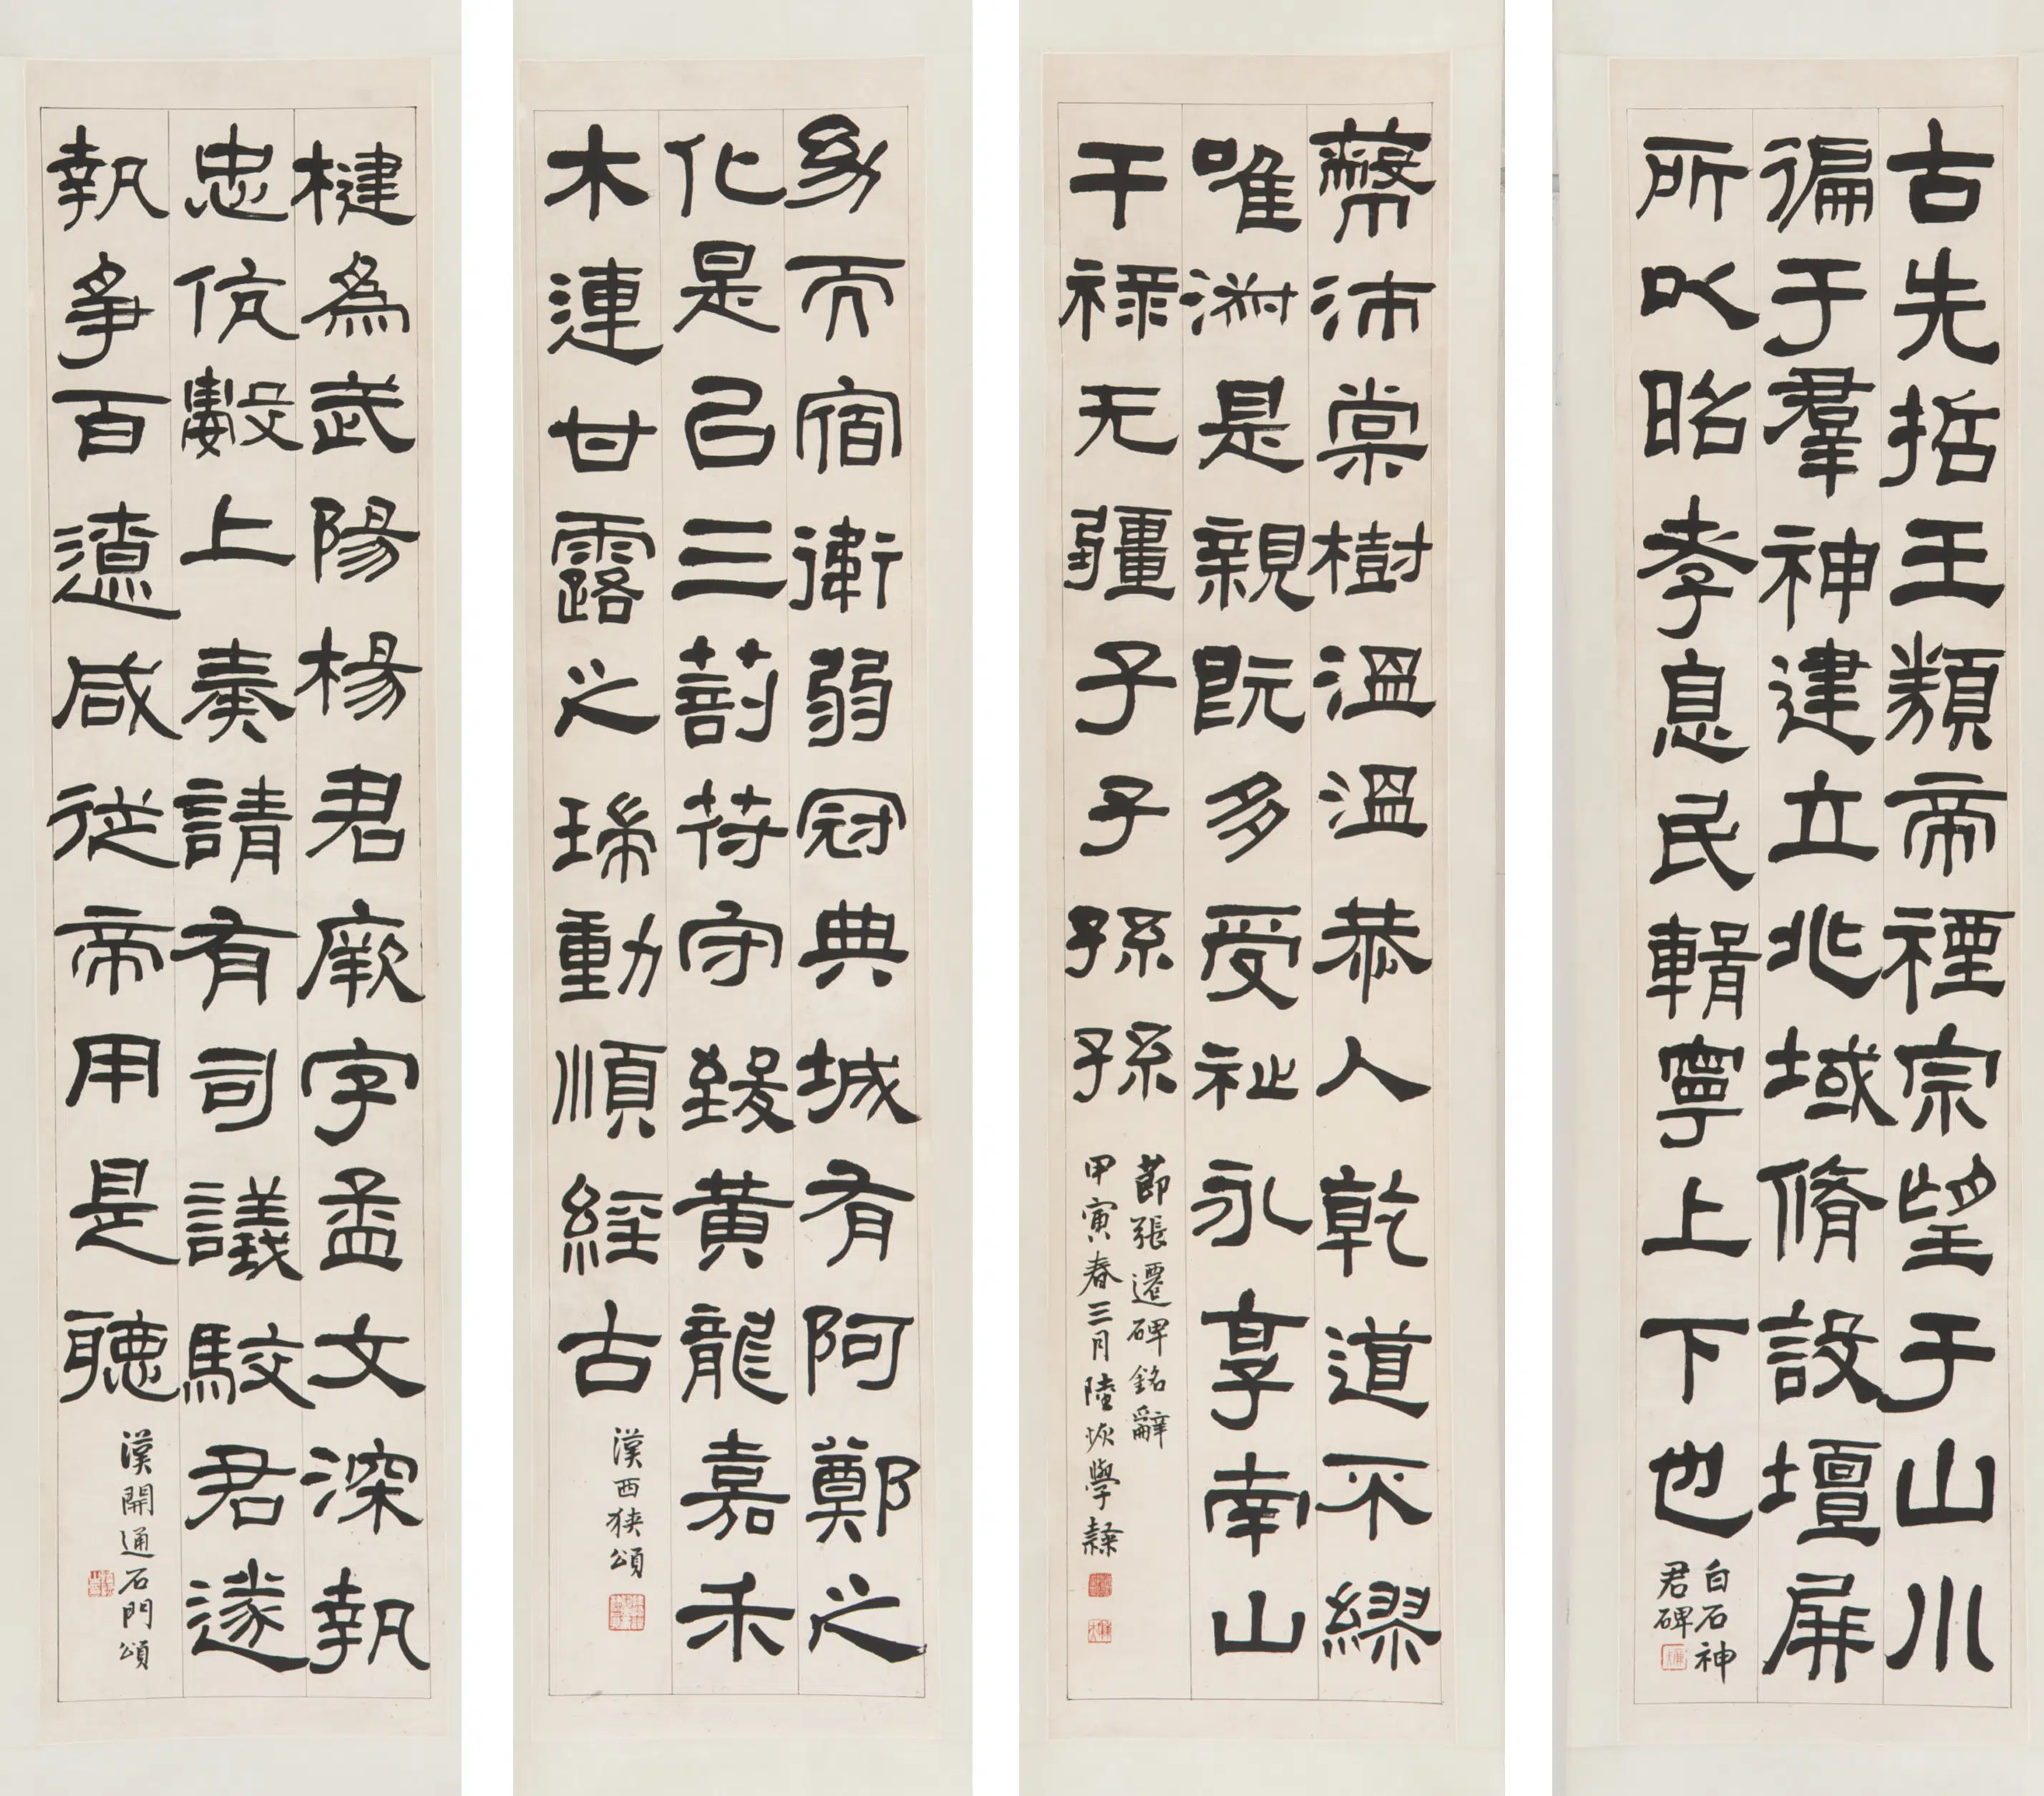 古先哲王類帝禋宗望于山川
徧于羣神建立兆域脩設壇屏
所以昭孝息民輯寧上下也
白石神
君碑
蔽沛棠樹溫溫恭人乾道不繆
唯淑是親既多受祉永享南山
干祿无疆子子孫孫
節張遷碑銘辭
甲寅春三月陸恢學隸
幼而宿衛弱冠典城有阿鄭之
化是以三剖符守致黃龍嘉禾
木連甘露之瑞動順經古
漢西狹頌
楗為武陽楊君厥字孟文深執
忠伉數上奏請有司議駮君遂
執爭百遼咸從帝用是聽
漢開通石門頌